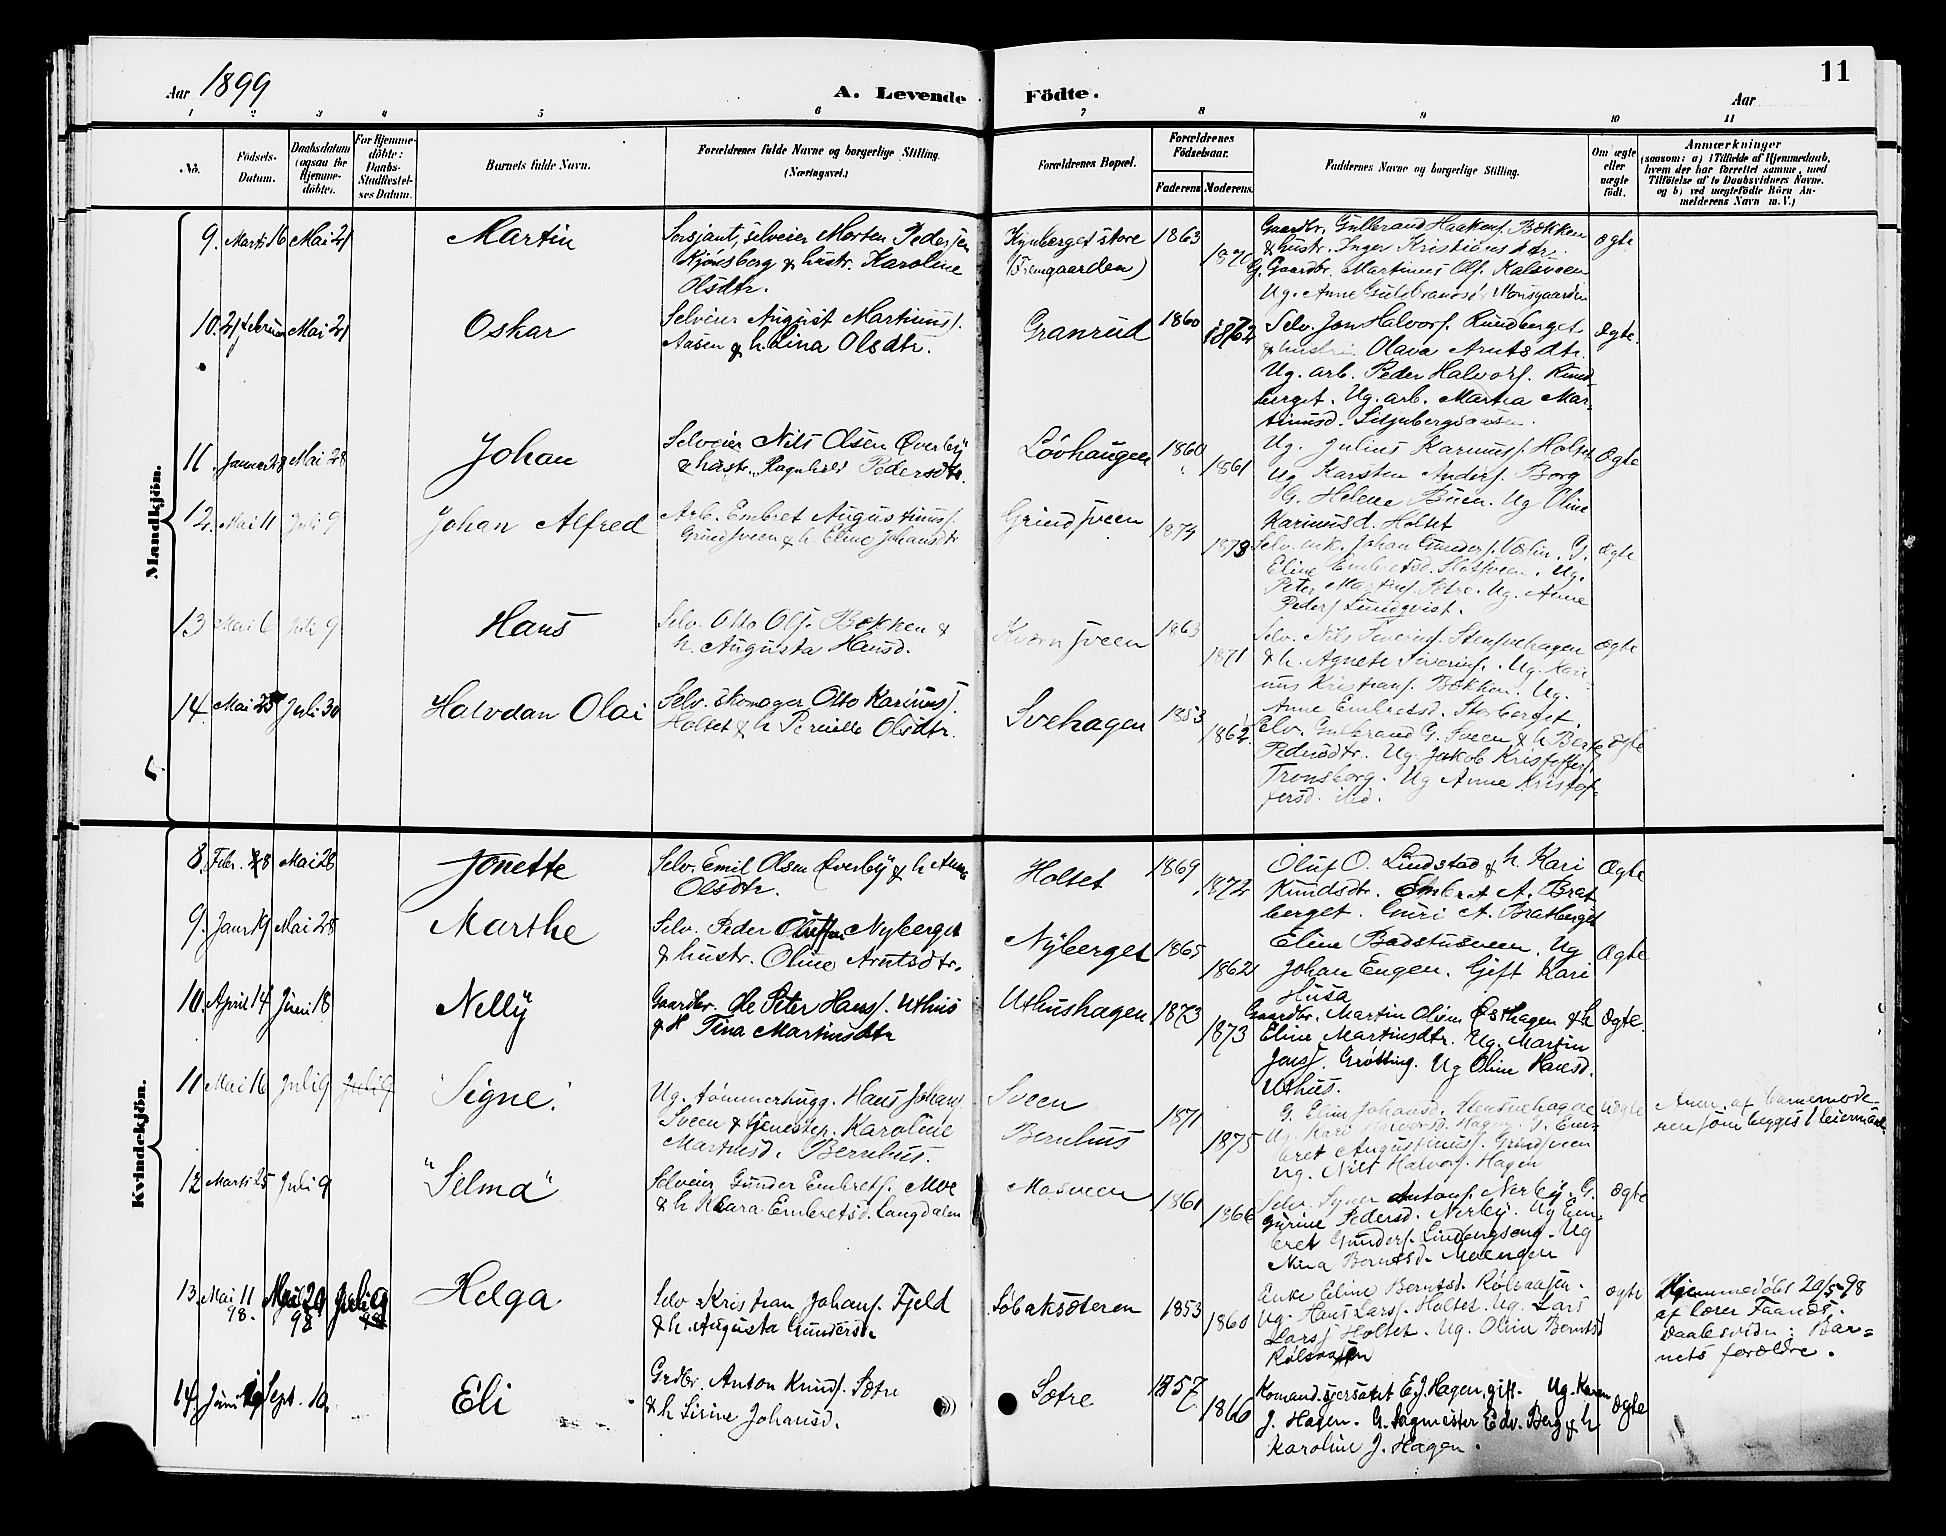 Aar 1899
A. Levende
Födte.
Aar
11
1 2 3 4 5 6 7 8 9 10 11
No.
Födsels-
Datum.
Daabsdatum
(ogsaa for
Hjemme-
döbte).
For Hjemme-
döbte:
Daabs-
Stadfestel-
ses Datum.
Barnets fulde Navn.
Forældrenes fulde Navne og borgerlige Stilling.
(Næringsvei.)
Forældrenes Bopæl.
Forældrenes
Födselsaar.
Faderens Moderens
Faddernes Navne og borgerlige Stilling.
Om ægte
eller
uægte
födt.
Anmærkninger
(saasom: a) i Tilfælde af Hjemmedaab,
hvem der har forrettet samme, med
Tilföielse af to Daabsvidners Navne.
og b) ved uægtefödte Börn An-
melderens Navn m. V.)
Mandkjön.
9. Marts 16 Mai 21
Martin
Sersjant, selveier Morten Pedersen
Kjønsberg & hustr. Karoline
Olsdtr.
Kynberget store
(Fremgaarden)
1863
1870
Gaardbr. Gulbrand Haakens. Bækken
& hustr. Inger Kristiansdtr.
G. Gaardbr. Martinus Ols. Kalsveen
Ug. Anne Guldbrandsd. Monsgaarden
ægte
10. 21 Februar Mai 21
Oskar
Selveier August Martinus.
Aasen & h. Lina Olsdtr.
Granrud
1860
1862
Selv. Jon Halvors. Rundberget
& hustru Olava Arntsdtr.
Ug. arb. Peder Halvors. Rund-
berget. Ug. arb. Martea Mar-
tinusd. Seljubergsaasen.
Ægte.
11. Januar 28 Mai 28
Johan
Selveier Nils Olsen Øverby
& hustr. Ragnhild Pedersdtr.
Løvhaugen
1860
1861
Ug. Julius Karinus. Holtet
Ug. Karsten Anders. Borg
G. Helene Buen. Ug Oline
Karinusd. Holtet
Ægte
12. Mai 11 Juli 9
Johan Alfred
Arb. Embret Augustinus.
Grindsveen & h. Eline Johansdtr
Grindsveen
1874
1873
Selv. enk. Johan Gunders. Værlin. G.
Eline Embretsd. Slotsveen. Ug.
Peter Martins. Sætre. Ug. Anne
Peders. Lundqvist.
ægte
13 Mai 6 Juli 9
Hans
Selv. Otto Ols. Bækken &
h. Augusta Hansd.
Kvernsveen
1863
1871
Selv. Nils Severins. Stensvehagen
& h. Agnete Siverins. Ug. Kari-
nus Kristians. Bækken. Ug.
Anne Embretsd. Storberget.
ægte
14. Mai 25 Juli 30
Halvdan Olai
Selv. skomager Otto Karinus.
Holtet & h Pernille Olsdtr.
Svehagen
1853
1862
Selv. Gulbrand G. Sveen & h Berte
Pedersdtr. Ug. Jakob Kristoffers.
Tronsberg. Ug Anne Kristof-
fersd. ibid.
ægte
Kvindekjön.
8. Febr. 28 Mai 28
Jonette
Selv. Emil Olsen Øverby & h Anne
Olsdtr.
Holtet
1869
1872
Oluf O. Lindstad & h. Kari
Knudsdtr. Embret A. Brat
berget. Guri A. Bratberget
Ægte
9. Janr 19 Mai 28
Marthe
Selv. Peder Olufsen Nyberget
& hustr. Oline Arntsdtr.
Nyberget
1865
1862
Eline Badstusveen. Ug
Johan Engen. Gift Kari
Husa
Ægte
10 April 14 Juni 18
Nelly
Gaardbr. Ole Peter Hans. Uthus
& H Tina Martinsdtr
Uthushagen
1873
1873
Gaardbr. Martin Olsen Østhagen & h
Eline Martinsdtr. Ug. Martin
Jons. Grøtting. Ug Oline Hansd.
Uthus.
Ægte.
11 Mai 16 Juli 9 Juli 9
Signe.
Ug. tømmerhugg. Hans Johans.
Sveen & tjenestep. Karoline
Martinsd. Bernhus.
Sveen
Bernhus
1871
1875
G. Eline Johansd. Stensvehagen
Ug. Kari Halvorsd. Hagen. G. Em-
bret Augustinus. Grindsveen
Ug. Nils Halvors. Hagen
uægte
Anm. af barnemode-
ren som begges 1 leiermaal.
12 Marts 25 Juli 9
"Selma"
Selveier Gunder Embrets. Moe
& h Klara Embretsd. Langdalen
Mosveen
1861
1866
Selv. Syver Antons. Nerby. G.
Gurine Pedersd. Nerby. Ug Em-
bret Gunders. Lindbergseng. Ug
Nina Berntsd. Moengen
ægte
13. Mai 11 98. Mai 20 98 Juli 9 98
Helga.
Selv Kristian Johans. Fjeld
& h. Augusta Gundersd.
Løbaksæteren
1853
1860
Enke Eline Berntsd. Rølsaasen.
Ug. Hans Lars. Holtet. Ug. Lars
Lars. Holtet. Ug. Oline Berntsd
Rølsaasen
ægte
Hjemmedøbt 20/5-98
af lærer Faanes.
Daabsvidn: Bar-
nets forældre.
14. Juni 19 Sept. 10.
Eli
Grdbr. Anton Knuds. Sætre
& h Sirine Johansd.
Sætre
1857
1866
Komand.sjersant E. J. Hagen, gift. Ug. Karen
J. Hagen. G. Sagmester Edv. Berg & h
Karoline J. Hagen.
Ægte